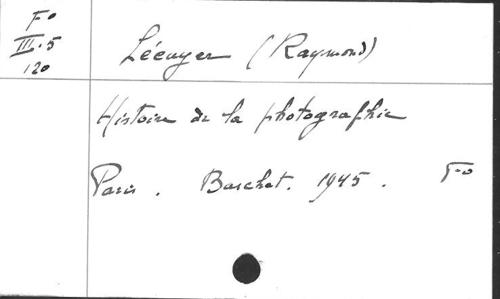 Fo
III.5
120
Lécuyer (Raymond)
Histoire de la photographie
Paris. Baschet. 1945. Fo